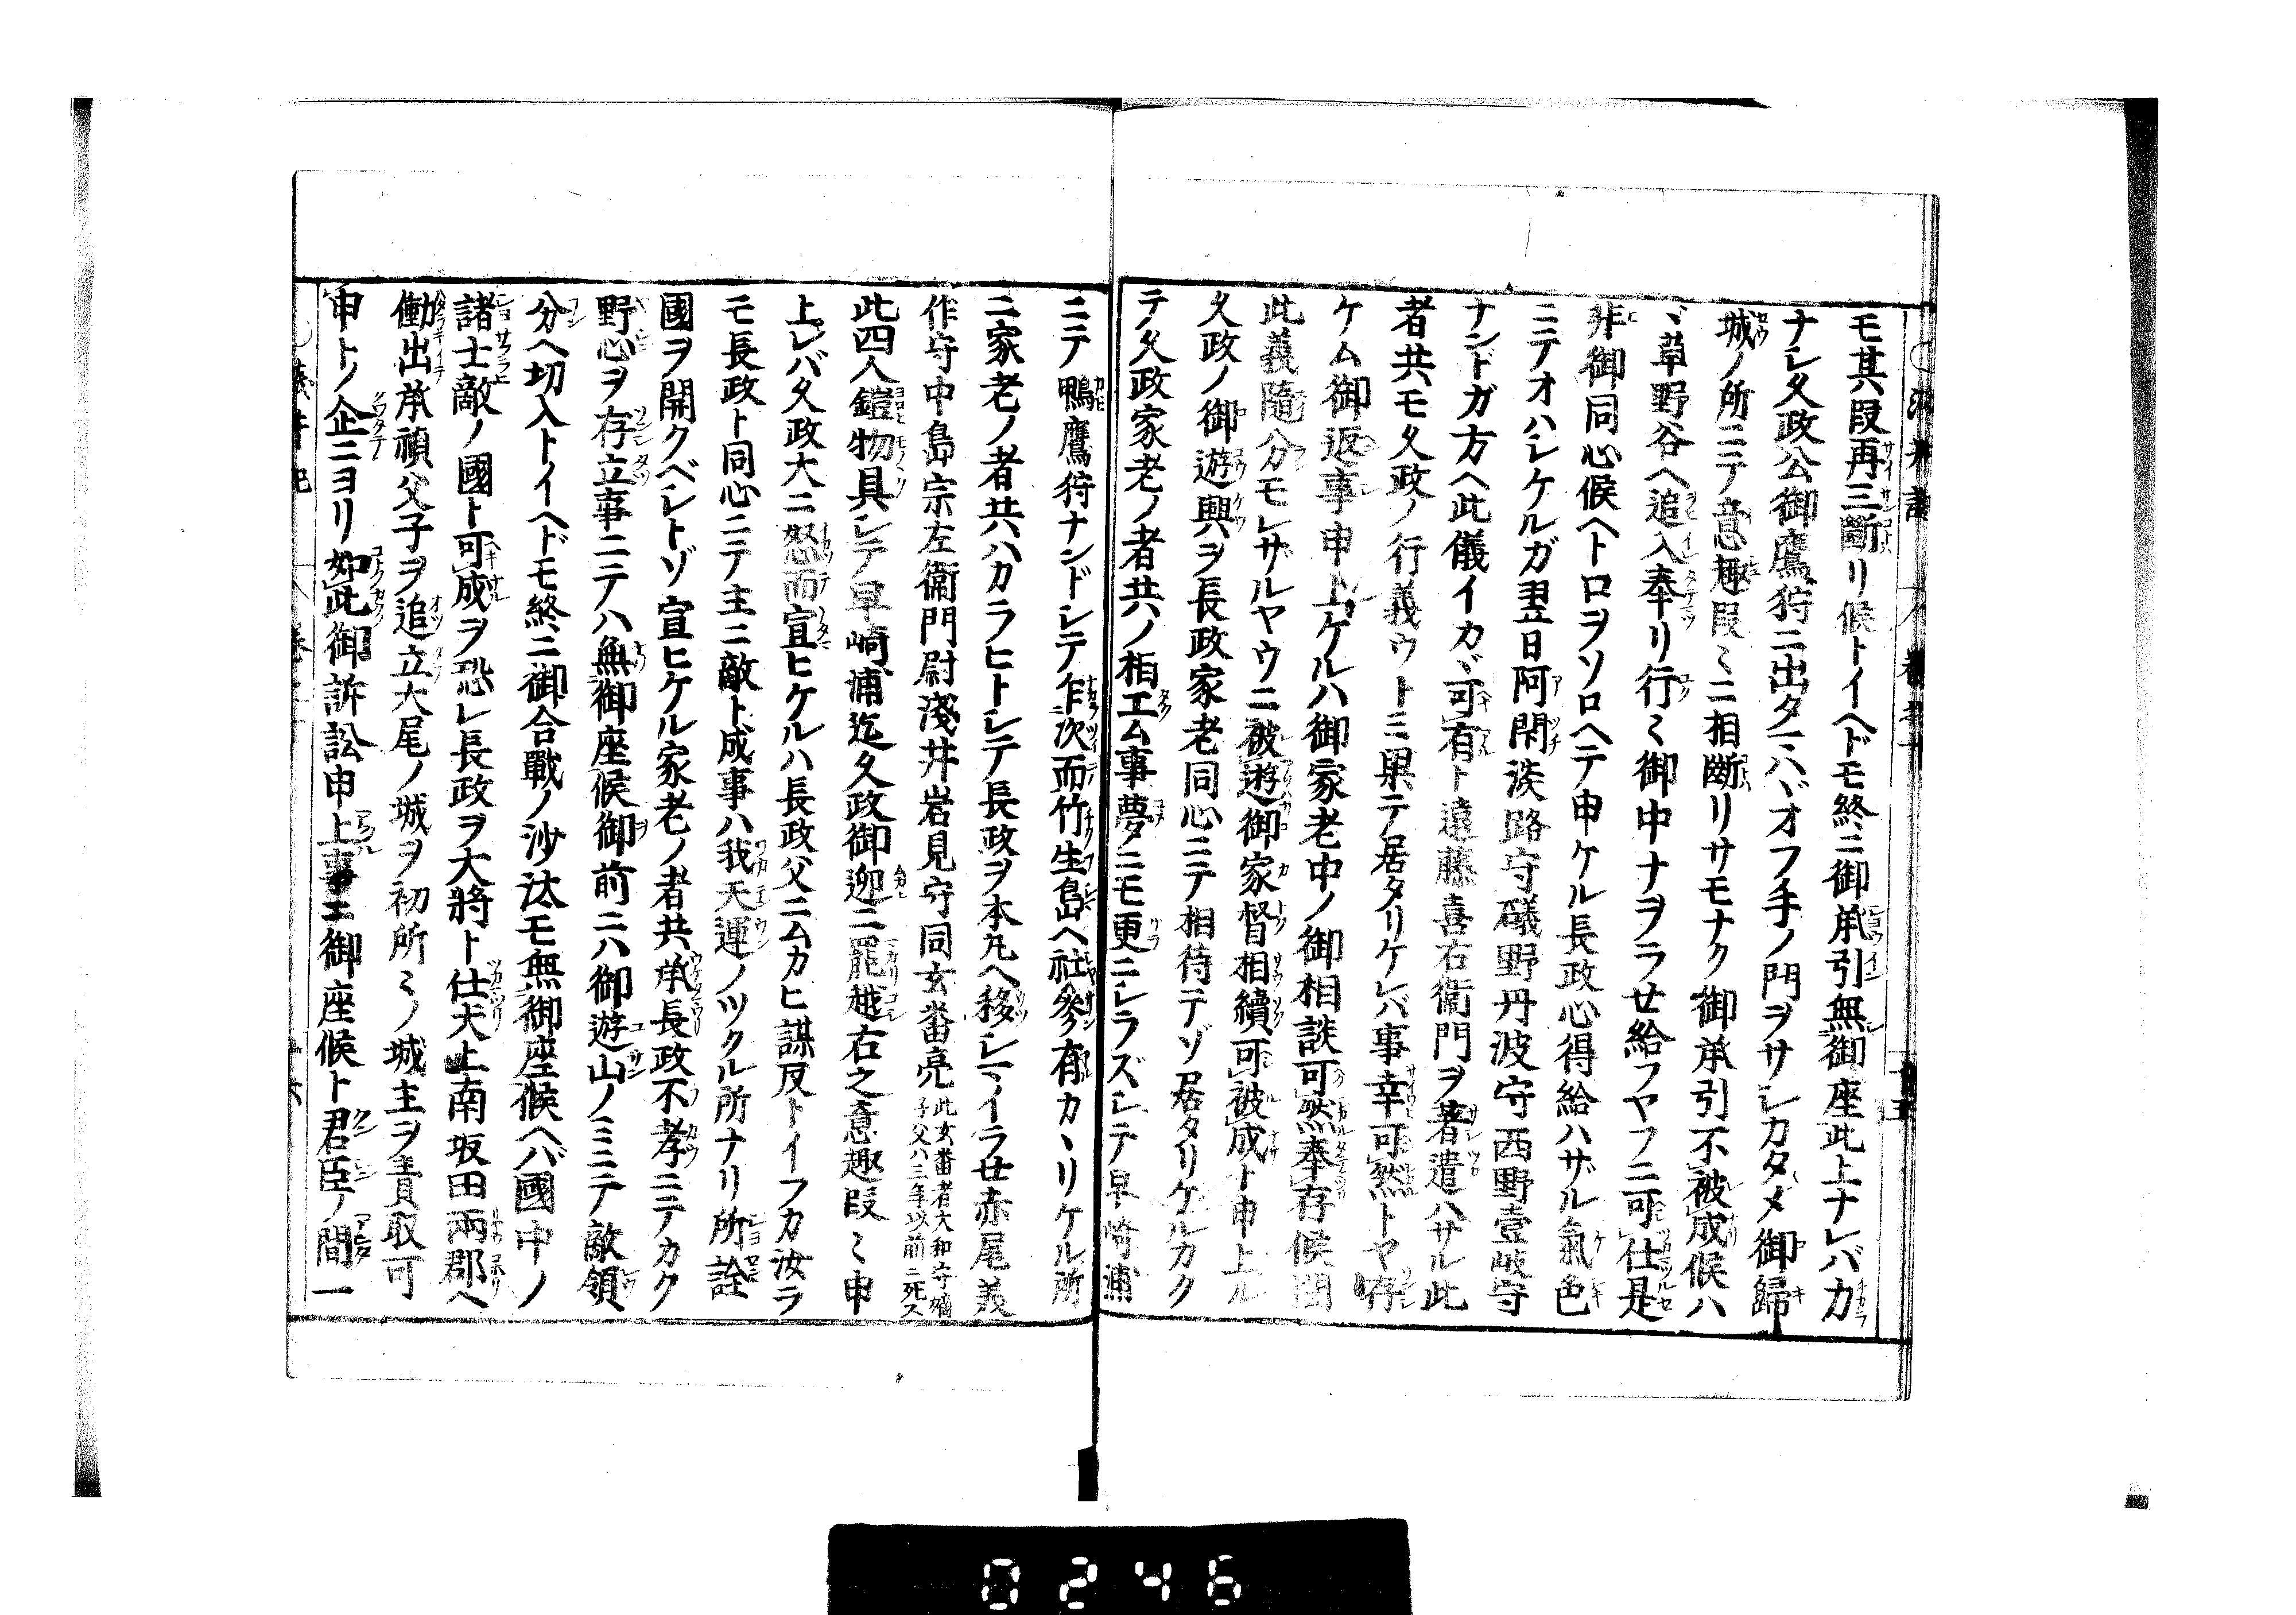 モ其段再三斷リ候トイヘドモ終ニ御承引無御座此上ナレバカ
ナレ久政公御鷹狩ニ出タマハヾオフ手ノ門ヲサシカタメ御歸
城ノ所ニテ意趣段々ニ相斷リサモナク御承引不被成候ハ
ヾ草野谷ヘ追入奉リ行々御中ナヲラせ給フヤフニ可仕是
非御同心候ヘト口ヲソロヘテ申ケル長政心得給ハザル氣色
ニテオハシケルガ翌日阿閉淡路守磯野丹波守西野壹岐守
ナンドガ方ヘ此儀イカヾ可有ト遠藤喜右衞門ヲ著遣ハサル此
者共モ久政ノ行義ウトミ果テ居タリケレバ事幸可然トヤ存
ケム御返事申上ケルハ御家老中ノ御相談可然奉存候間
此義隨分モレザルヤウニ被遊御家督相續可被成ト申上ル
久政ノ御遊興ヲ長政家老同心ニテ相待テゾ居タリケルカク
テ久政家老ノ者共ノ相工ム事夢ニモ更ニシラズシテ早崎浦
ニテ鴨鷹狩ナンドシテ乍次而竹生島ヘ社參有カヽリケル所
ニ家老ノ者共ハカラヒトシテ長政ヲ本丸ヘ移シマイラせ赤尾美
作守中島宗左衞門尉淺井岩見守同玄蕃亮此玄蕃者大和守嫡子父ハ三年以前ニ死ス
此四人鎧物具シテ早崎浦迄久政御迎ニ罷越右之意趣段々申
上レバ久政大ニ怒而宣ヒケルハ長政父ニムカヒ謀反トイフカ汝ラ
モ長政ト同心ニテ主ニ敵ト成事ハ我天運ノツクル所ナリ所詮
國ヲ開クベシトゾ宣ヒケル家老ノ者共承長政不孝ニテカク
野心ヲ存立事ニテハ無御座候御前ニハ御遊山ノミニテ敵領
分ヘ切入トイヘドモ終ニ御合戰ノ沙汰モ無御座候ヘバ國中ノ
諸士敵ノ國ト可成ヲ恐レ長政ヲ大將ト仕犬上南坂田兩郡ヘ
働出承禎父子ヲ追立大尾ノ城ヲ初所々ノ城主ヲ責取可
申トノ企ニヨリ如此御訴訟申上事ニ御座候ト君臣ノ間一